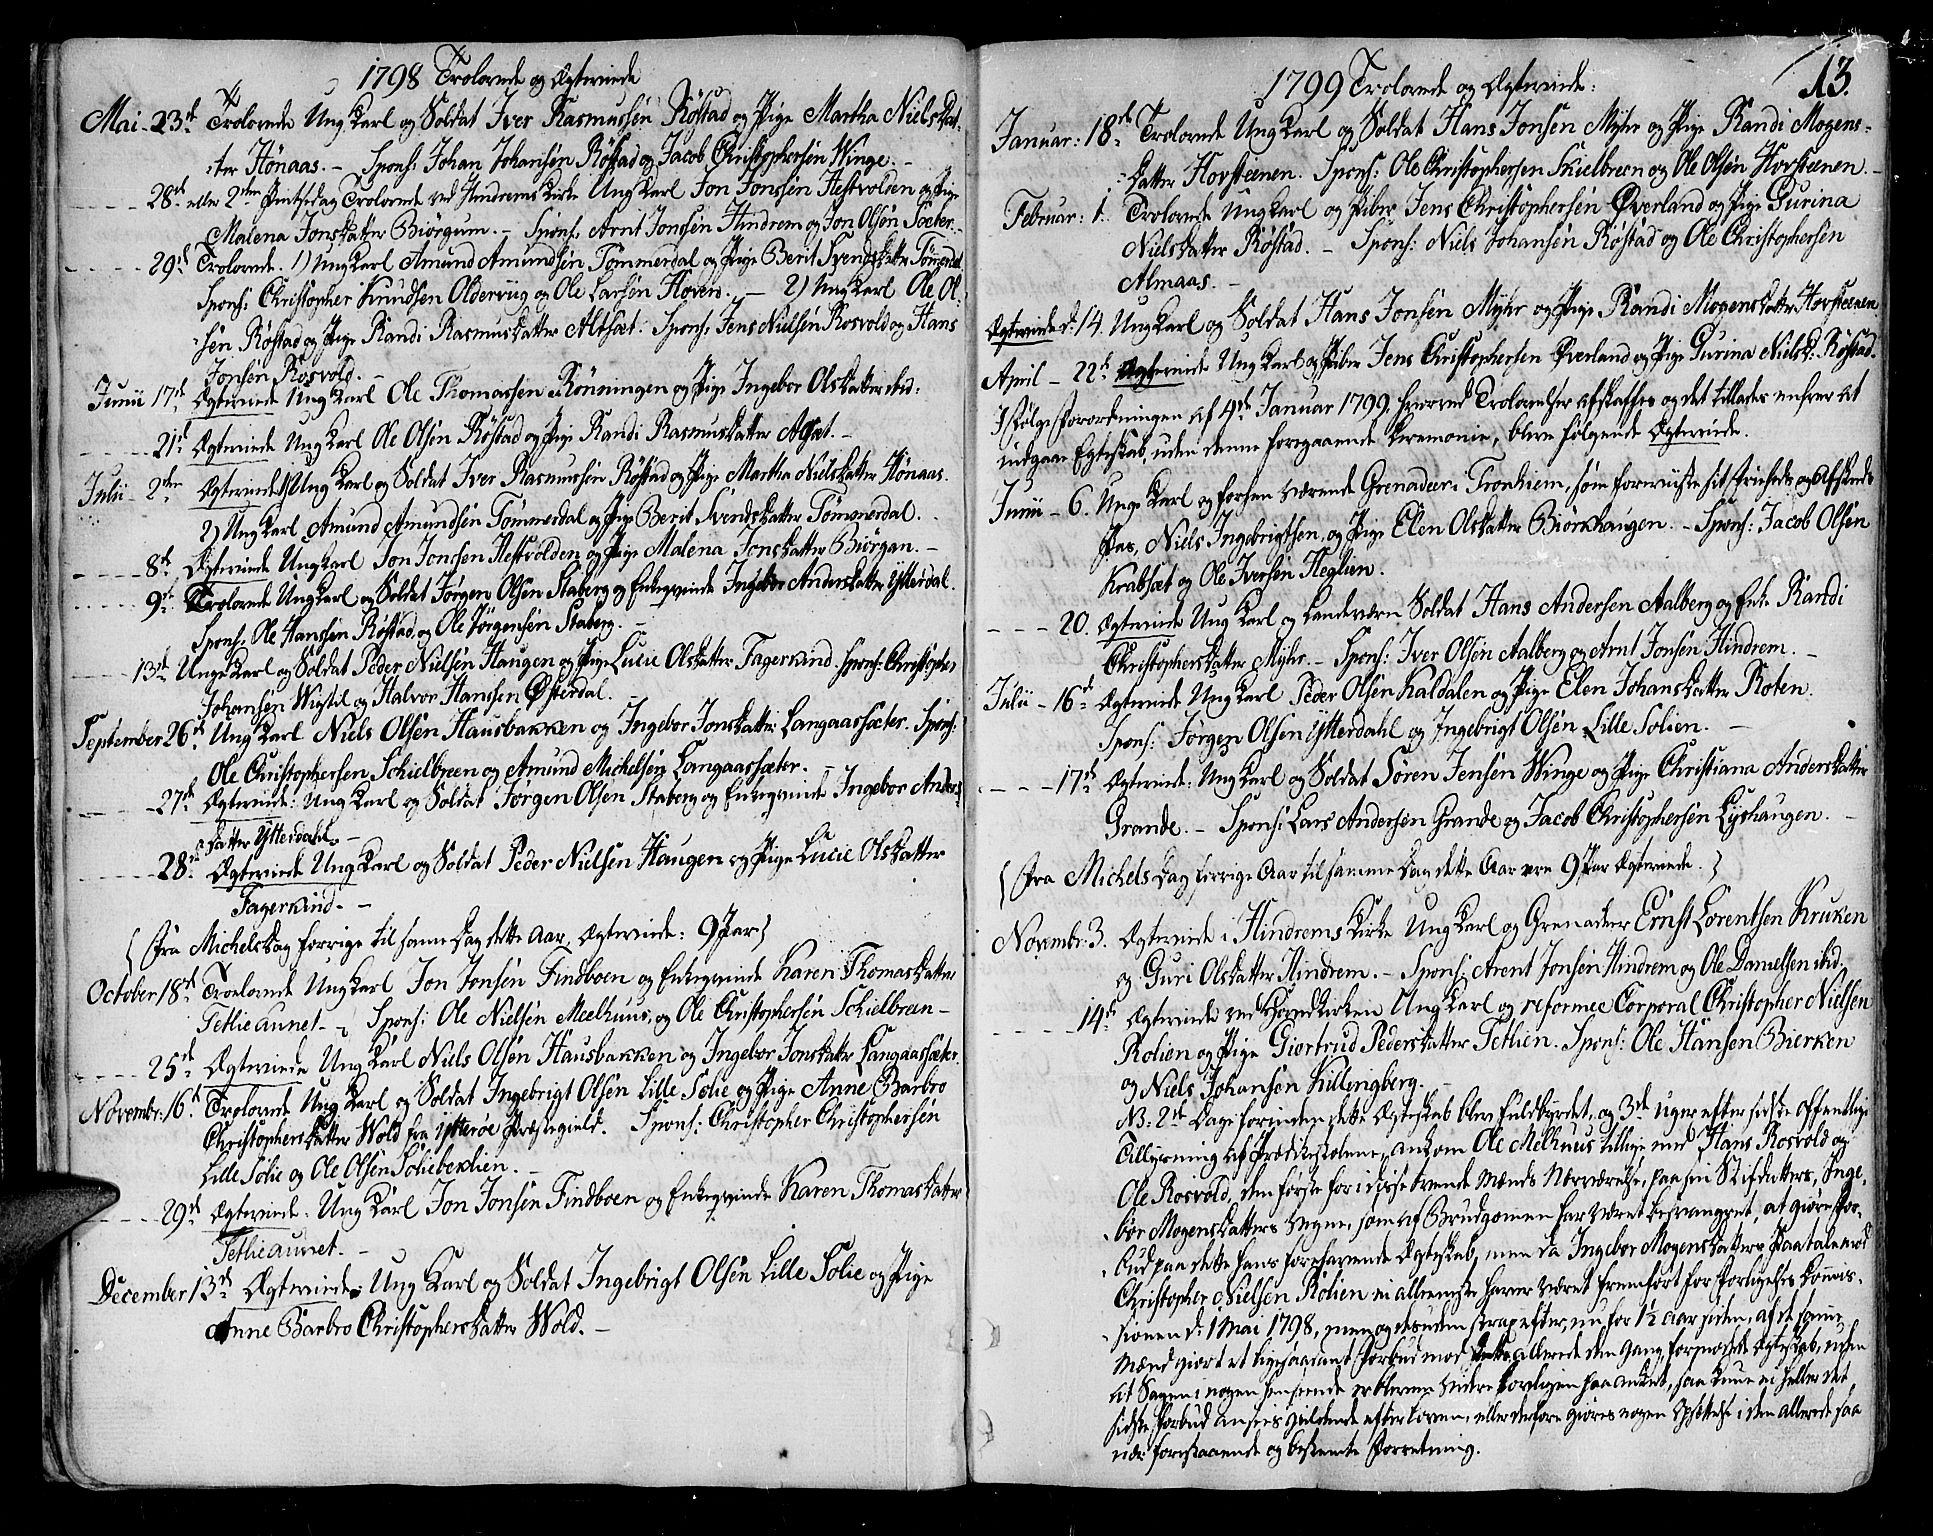 1798 Trolovede og Ægteviede
Mai - 23de Trolovede Ung Karl og Soldat Iver Rasmussen Röstad og Pige Martha Nielsdat-
ter Hönaas. - Spons: Johan Johansen Röstad og Jacob Christophersen Winge. -
28de eller 2den Pintsedag Trolovede ved Hindrems Kirke Ung Karl Jon Jonsen Hestvolden og Pige
Malena Jonsdatter Biörgum. - Spons: Arnt Jonsen Hindrem og Jon Olsen Sæter. -
29de Trolovede. 1) Ung Karl Amund Amundsen Tömmerdal og Pige Berit Svendsdatter Tömmerdal.
Spons: Christopher Knudsen Oldervüg og Ole Larsen Hoven. - 2) Ung Karl Ole Ol-
sen Röstad og Pige Randi Rasmusdatter Altsæt. Spons: Jens Nielsen Rosvold og Hans
Jonsen Rosvold. -
Junii 17de Ægteviede Ung Karl Ole Thomassen Rönningen og Pige Ingebor Olsdatter ibid:
21de Ægteviede Ung Karl Ole Olsen Röstad og Pige Randi Rasmusdatter Alsæt. -
Julii - 2den Ægteviede 1) Ung Karl og Soldat Iver Rasmussen Röstad og Pige Martha Nielsdatter Hönaas.
2) Ung Karl Amund Amundsen Tömmerdal og Pige Berit Svendsdatter Tömmerdal.
8de Ægteviede Ung Karl Jon Jonsen Hestvolden og Pige Malena Jonsdatter Biörgan. -
9de Trolovede Ung Karl og Soldat Jörgen Olsen Staberg og Enkeqvinde Ingebor Andersdatter Ytterdal.
Spons: Ole Hansen Röstad og Ole Jörgensen Staberg. -
13de Unge Karl og Soldat Peder Nielsen Haugen og Pige Lucie Olsdatter Fagerkind. Spons: Christopher
Johansen Wigtil og Halvor Hansen Österdal. -
September 26de Ung Karl Niels Olsen Hausbakken og Ingebor Jonsdatter Langaassæter. Spons:
Ole Christophersen Schielbreen og Amund Michelsen Langaassæter. -
27de Ægteviede: Ung Karl og Soldat Jörgen Olsen Staberg og Enkeqvinde Ingebor Anders-
datter Ytterdahl. -
28de Ægteviede Ung Karl og Soldat Peder Nielsen Haugen og Pige Lucie Olsdatter
Fagerkind. -
{ Fra Michelsdag forrige til samme Dag dette Aar, Ægteviede: 9 Par }
October 18de Trolovede Ung Karl Jon Jonsen Findboen og Enkeqvinde Karen Thomasdatter
Tethieaunet. - Spons: Ole Nielsen Meelhuus, og Ole Christophersen Schielbreen -
25de Ægteviede Ung Karl Niels Olsen Hausbakken og Ingebor Jonsdatter Langaassæter.
Novembr: 16de Trolovede Ung Karl og Soldat Ingebrigt Olsen Lille Solie og Pige Anne Barbro
Christophersdatter Wold fra Ytteröe Præstegield. Spons: Christopher Christophersen
Lille Solie og Ole Olsen Soliebakken. -
29de Ægteviede. Ung Karl Jon Jonsen Findboen og Enkeqvinde Karen Thomasdatter
Tethieaunet. -
December 13de Ægteviede. Ung Karl og Soldat Ingebrigt Olsen Lille Solie og Pige
Anne Barbro Christophersdatter Wold. -
13.
1799 Trolovede og Ægteviede:
Januar: 18de Trolovede Ung Karl og Soldat Hans Jonsen Myhr og Pige Randi Mogens-
datter Hovsteenen. Spons: Ole Christophersen Skielbreen og Ole Olsen Hovsteenen. -
Februar: 1. Trolovede Ung Karl og Piber Jens Christophersen Överland og Pige Gurina
Nielsdatter Röstad. - Spons: Niels Johansen Röstad og Ole Christophersen
Almaas. -
Ægteviede d: 14. Ung Karl og Soldat Hans Jonsen Myhr og Pige Randi Mogensdatter Hovsteenen
April - 22de Ægteviede Ung Karl og Piber Jens Christophersen Överland og Pige Gurina Nielsd: Röstad.
I Fölge Forordningen af 4de Januar 1799. hvorved Trolovelser afskaffes og det tillades enhver at
indgaae Egteskab, uden denne foregaaende Ceremonie, bleve fölgende Ægteviede.
Junii - 6. Unge Karl og forhen værende Grenadeer i Tronhiem, som foreviiste sit Friheds og Afskeeds
Pas, Niels Ingebrigtsen, og Pige Elen Olsdatter Biörkhaugen. - Spons: Jacob Olsen
Krabsæt og Ole Iversen Heglien.
20. Ægteviede Ung Karl og Landværn Soldat Hans Andersen Aalberg og Enke Randi
Christophersdatter Myhr. - Spons: Iver Olsen Aalberg og Arnt Jonsen Hindrem. -
Julii - 16de Ægteviede Ung Karl Peder Olsen Kaldalen og Pige Elen Johansdatter Roten.
Spons: Jörgen Olsen Ytterdahl og Ingebrigt Olsen Lille Solien. -
17de Ægteviede: Ung Karl og Soldat Sören Jensen Winge og Pige Christiana Andersdatter
Grande. - Spons: Lars Andersen Grande og Jacob Christophersen Lyshaugen. -
{ Fra Michelsdag forrige Aar til samme Dag dette Aar ere 9 Par Ægteviede. }
Novembr: 3. Ægteviede i Hindrems Kirke Ung Karl og Grenadeer Ernst Lorentsen Kruken
og Guri Olsdatter Hindrem. - Spons: Arent Jonsen Hindrem og Ole Danielsen ibid.
14de Ægteviede ved Hovedkirken Ung Karl og reformee Corporal Christopher Nielsen
Rolien og Pige Giertrud Pedersdatter Tethien. Spons: Ole Hansen Bierken
og Niels Johansen Killingberg. -
NB. 2de Dage forinden dette Ægteskab blev fuldbyrdet, og 3de Uger efter sidste offentlige
Tillysning af Prædikestolene, ankom Ole Melhuus tillige med Hans Rosvold og
Ole Rosvold, den förste for i disse tvende Mænds Nærværelse, paa sin Stifdatters, Inge-
bor Mogensdatters Vegne, som af Brudgommen har været besvangret, at giöre For-
bud paa dette hans forehavende Ægteskab, men da Ingebor Mogensdatters Paatale mod
Christopher Nielsen Rolien ei alleeneste haver været fremfört for Forligelses Commis-
sionen d: 1 Mai 1798, men og desuden strax efter, nu for 1½ Aar siden, af de samme
Mænd giort et ligesaadant Forbud mod dette, allerede den Gang, formodede Ægteskab, uden
at Sagen i nogen henseende er bleven videre forelagen paa anket, saa kunde ei heller det
sidste Forbud ansees gieldende efter Loven, eller derfore giöres nogen Opsættelse i den allerede saa
nær forestaaende og bestemte Forretning.